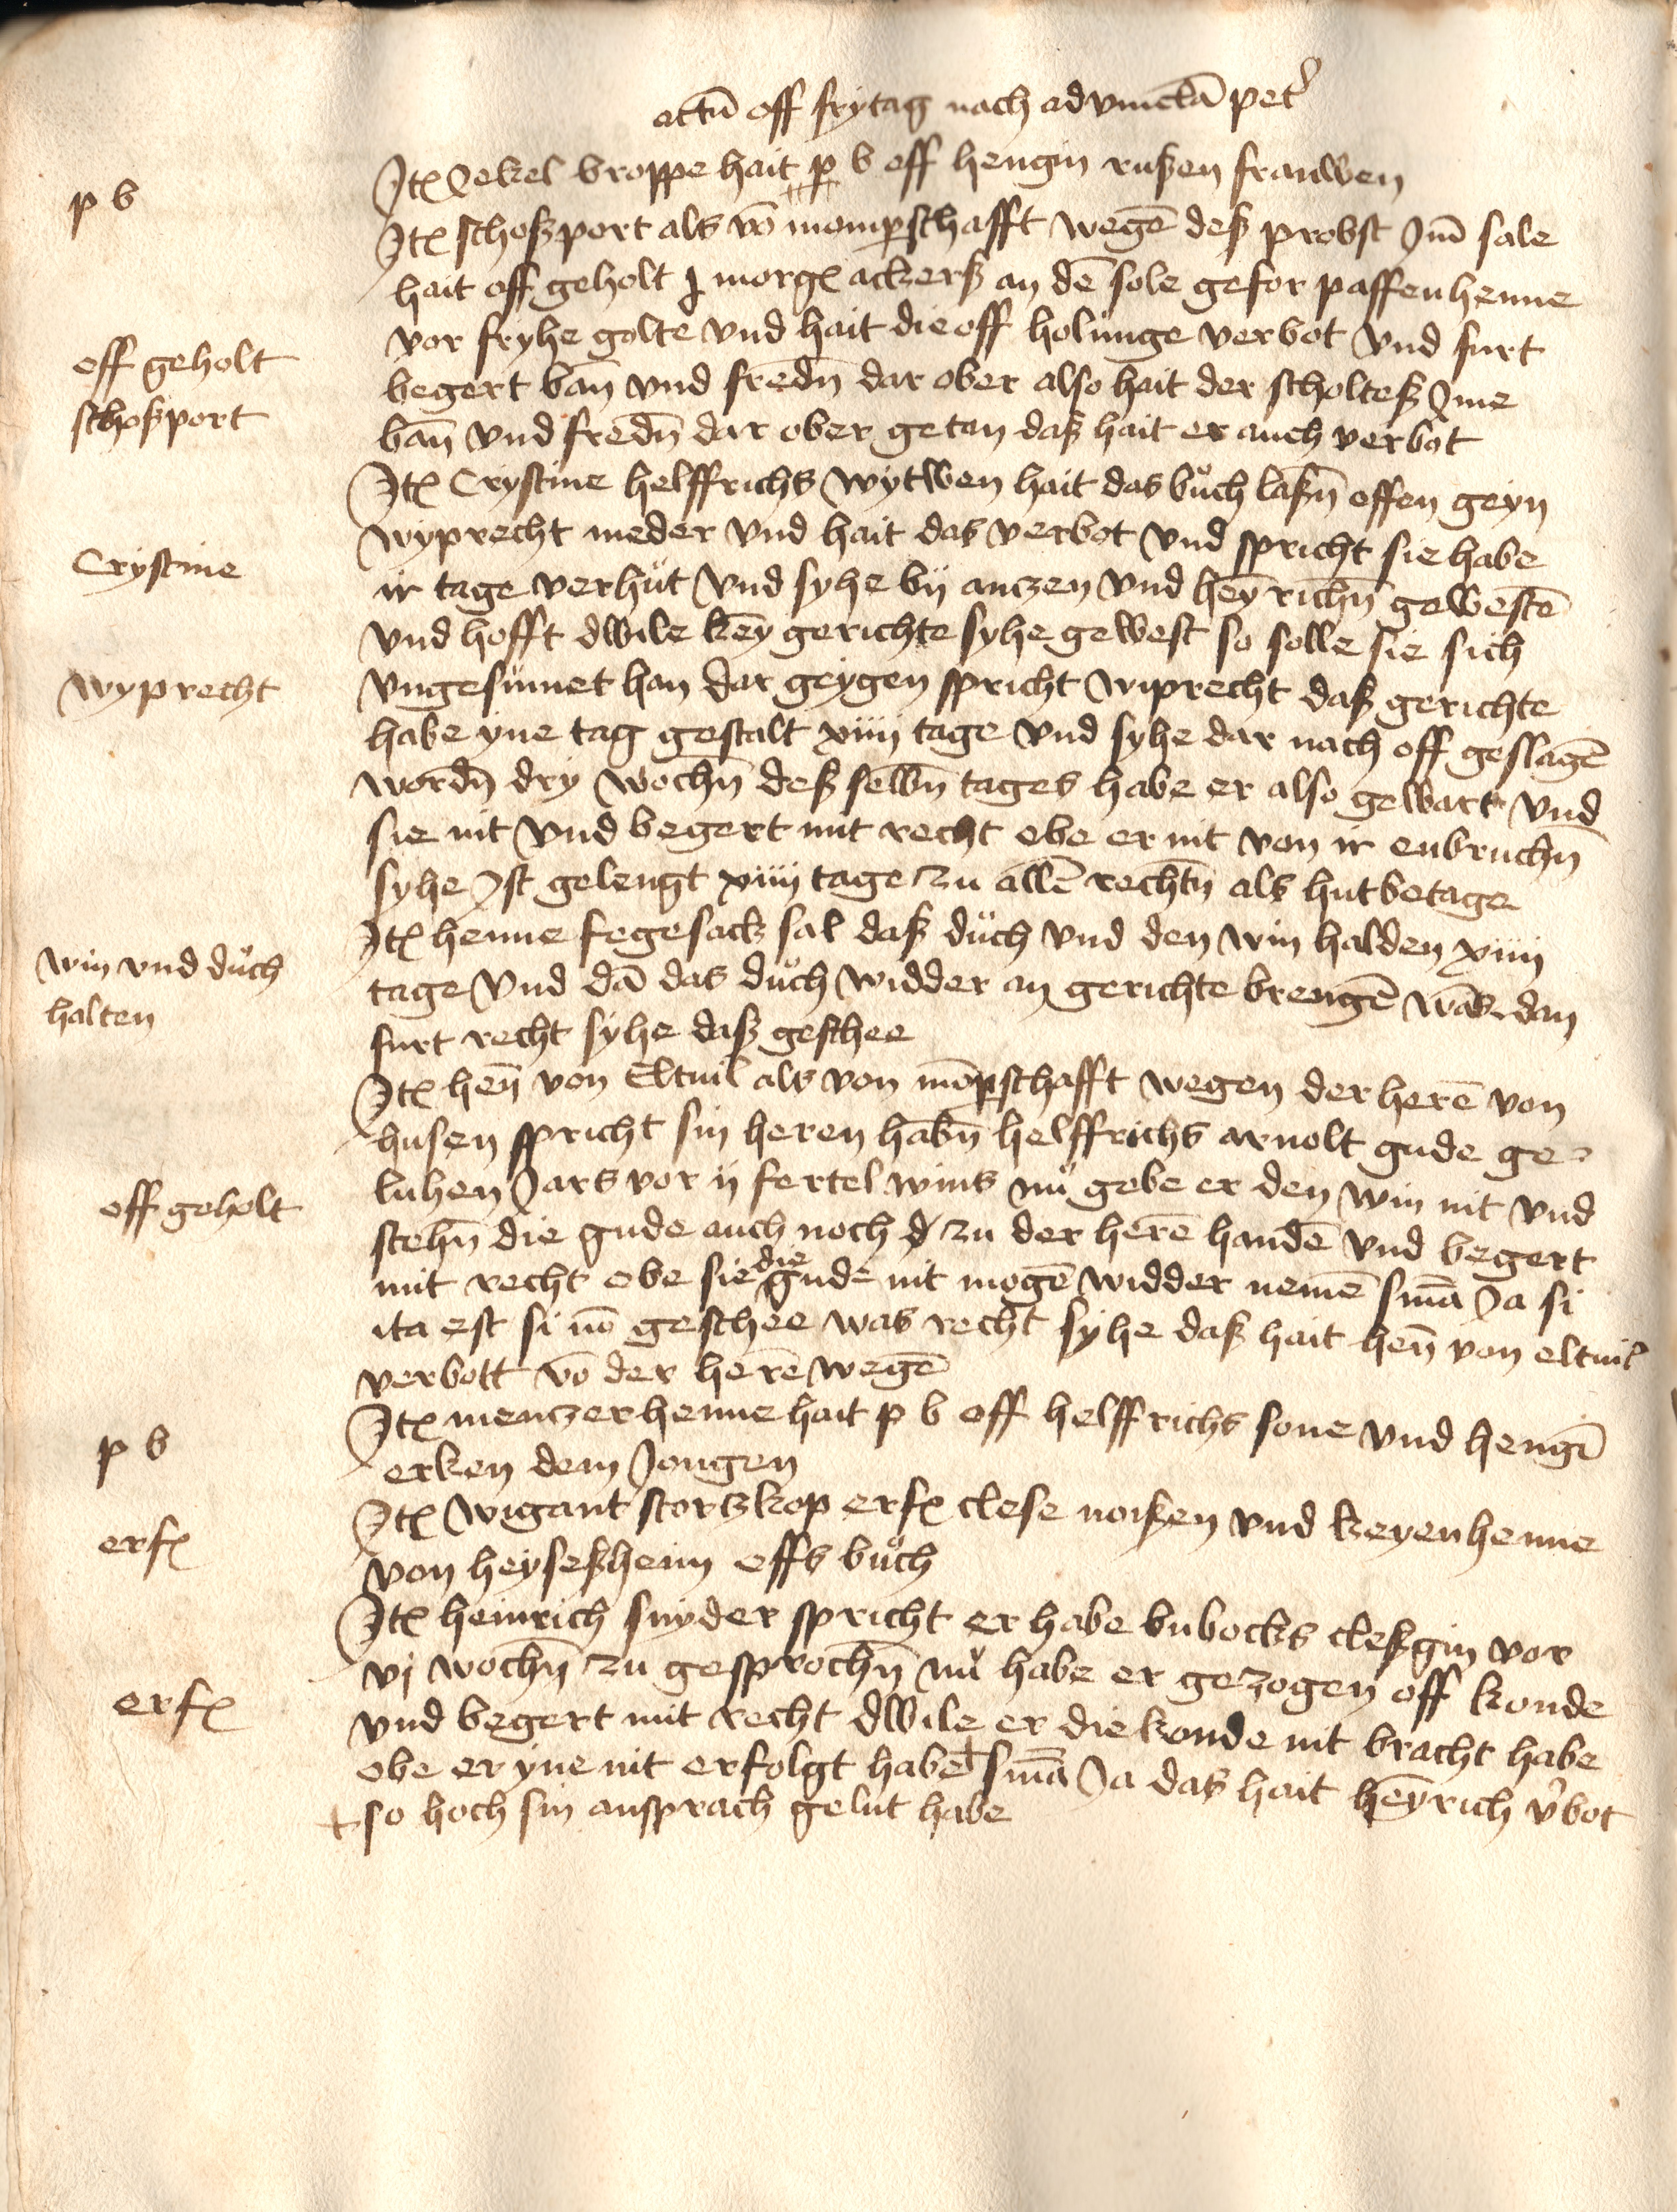 actū off frytag nach ad vincl̄a pet͛
p b
Itꝫ Jekel broppe hait p b off hengin rußen frauwen
Itꝫ schoßport als vō momp̱schafft wegē deß probst Im̄ sale
hait off geholt j morgꝫ ackerß an dē sole gefor paffenhenne
vor fryhe golte vnd hait die off holunge verbot vnd furt
off geholt
begert ban̄ vnd fredn̄ dar ober also hait der scholteß Ime
schoßport
ban̄ vnd fredn̄ dar ober getan daß hait er auch verbot
Itꝫ Crystine helffrichs wytwen hait das bůch laßn̄ offen geyn
wyprecht meder vnd hait das verbot vnd spricht sie habe
Crystine
ir tage verhůt vnd syhe by anczen vnd hey̅richn̄ gewestē
vnd hofft dwile key̅ gerichte syhe gewest so solle sie sich
wyprecht
vngesumet han dar geygen spricht wiprecht daß gerichte
habe yne tag gestalt xiiij tage vnd syhe dar nach off geslagē
wordn̄ dry wochn̄ deß selbn̄ tages habe er also gewart vnd
sie nit vnd begert mit recht obe er nit von ir enbruchn̄
syhe Ist gelengt xiiij tage zu allē rechtn̄ als hutbetage
Itꝫ henne fegesack sal daß důch vnd den win halden xiiij
win vnd důch
tage vnd dā das důch widder an gerichte brengē was dan
halten
furt recht syhe daß geschee
Itꝫ hen̄ von Eltuil als von mōp̱schafft wegen der herē von
husen spricht sin heren habn̄ helffrichs arnolt gude ge-
off geholt
luhen Jars vor ij fertel wins nů gebe er den win nit vnd
stehn̄ die gude auch noch zu der herē handē vnd begert
mit recht obe sie die gude nit mogē widder nemē sm̄a Ja si
ita est si nō geschee was recht syhe daß hait hen̄ von eltuil
verbott vō der herē wegē
p b
Itꝫ menczerhenne hait p b off helffrichs sone vnd hengī
erken dem Jongen
erfꝫ
Itꝫ wigant stortzkop erfꝫ clese noißen vnd keyenhenne
von heyseßheim offs bůch
Itꝫ heinrich snyder spricht er habe bubocks cleßgin vor
vj wochn̄ zu gesprochn̄ nů habe er gezogen off konde
erfꝫ
vnd begert mit recht dwile er die konde nit bracht habe
obe er yne nit erfolgt habe + sm̄a Ja das hait hey̅rich v͛bot
+ so hoch sin ansprach gelut habe